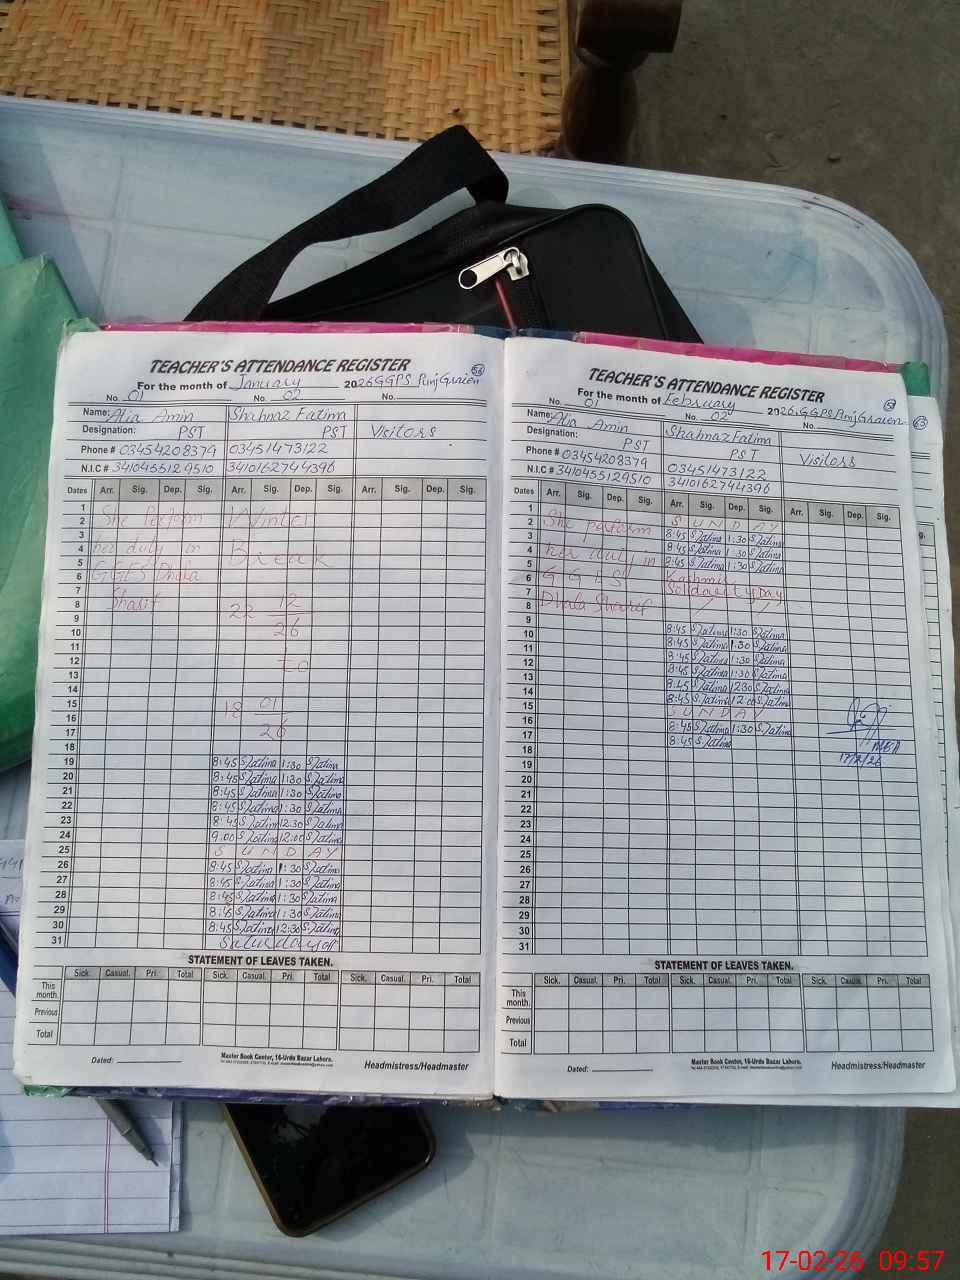 TEACHER'S ATTENDANCE REGISTER
56
For the month of January 2026 GGPS Punj Graien
No. 01 No. 02 No.
Name: Alia Amin Shahnaz Fatima
Designation: PST PST Visitors
Phone # 03454208379 03451473122
N.I.C # 3410455129510 3410162744396
Dates Arr. Sig. Dep. Sig. Arr. Sig. Dep. Sig. Arr. Sig. Dep. Sig.
1 She Perform Winter
2
3
4 her duty in Break
5
6 GGES Dhala
7
8 Sharif 22 12
9
10 26
11
12 To
13
14
15 18 01
16
17 26
18
19 8:45 S/atima 1:30 S/atima
20 8:45 S/atima 1:30 S/atima
21 8:45 S/atima 1:30 S/atima
22 8:45 S/atima 1:30 S/atima
23 8:45 S/atima 12:30 S/atima
24 9:00 S/atima 12:00 S/atima
25 SUNDAY
26 8:45 S/atima 1:30 S/atima
27 8:45 S/atima 1:30 S/atima
28 8:45 S/atima 1:30 S/atima
29 8:45 S/atima 1:30 S/atima
30 8:45 S/atima 12:30 S/atima
31 Saturday off
STATEMENT OF LEAVES TAKEN.
Sick. Casual. Pri. Total Sick. Casual. Pri. Total Sick. Casual. Pri. Total
This month.
Previous
Total
Dated:
Master Book Center, 16-Urdu Bazar Lahore.
Headmistress/Headmaster
TEACHER'S ATTENDANCE REGISTER
For the month of February 2026 GGPS Punj Graien
No. 01 No. 02 No.
Name: Alia Amin Shahnaz Fatima
Designation: PST PST Visitors
Phone # 03454208379 03451473122
N.I.C # 3410455129510 3410162744396
Dates Arr. Sig. Dep. Sig. Arr. Sig. Dep. Sig. Arr. Sig. Dep. Sig.
1 SUNDAY
2 She perform 8:45 S/atima 1:30 S/atima
3 8:45 S/atima 1:30 S/atima
4 her duty in 8:45 S/atima 1:30 S/atima
5 Kashmir
6 GGES Solidarity Day
7
8 Dhala Sharif
9 8:45 S/atima 1:30 S/atima
10 8:45 S/atima 1:30 S/atima
11 8:45 S/atima 1:30 S/atima
12 8:45 S/atima 1:30 S/atima
13 8:45 S/atima 12:30 S/atima
14 8:45 S/atima 12:00 S/atima
15 SUNDAY
16 8:45 S/atima 1:30 S/atima
17 8:45 S/atima
18
19 17/2/26
20
21
22
23
24
25
26
27
28
29
30
31
STATEMENT OF LEAVES TAKEN.
Sick. Casual. Pri. Total Sick. Casual. Pri. Total Sick. Casual. Pri. Total
This month.
Previous
Total
Dated:
Master Book Center, 16-Urdu Bazar Lahore.
Headmistress/Headmaster
17-02-26 09:57